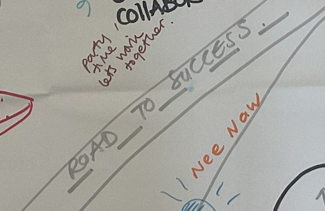 COLLABOR
party
time
lets work
together.
ROAD TO SUCCESS.
Nee Naw